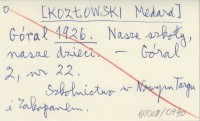 [KOZŁOWSKI Medard]
Góral 1926. Nasze szkoły,
nasze dzieci. — Góral
2, nr 22.
Szkolnictwo w Nowym Targu
i Zakopanem.